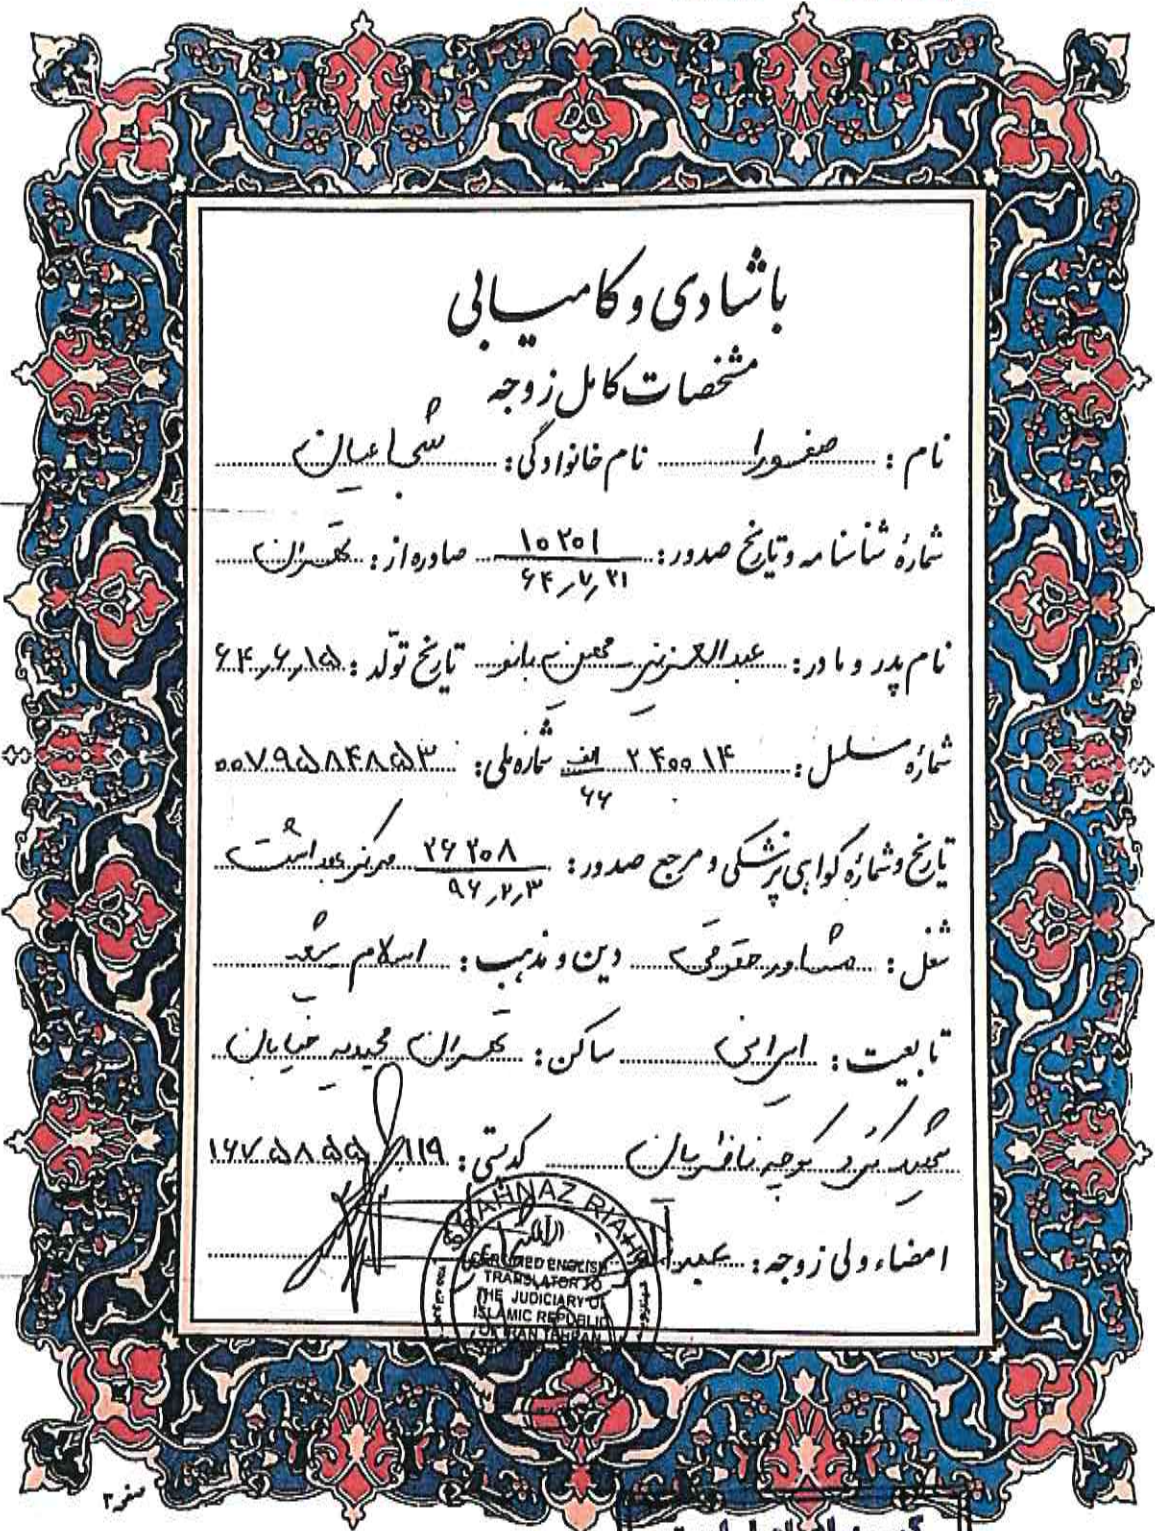 با شادی و کامیابی
مشخصات کامل زوجه
نام : صفورا نام خانوادگی : شجاعیان
شمارهٔ شناسنامه و تاریخ صدور : ۱۰۲۰۱ ۶۴٫۷٫۲۱ صادره از : تهران
نام پدر و مادر : عبدالعزیز _ بانو تاریخ تولّد : ۶۴٫۶٫۱۵
شمارهٔ مسلسل : ۲۴۰۰۱۴ الف ۶۶ شماره ملی : ۰۰۷۹۵۸۴۸۵۳
تاریخ و شمارهٔ گواهی پزشکی و مرجع صدور : ۲۶۲۰۸ ۹۶٫۲٫۳ مرکز بهداشت
شغل : مشاور حقوقی دین و مذهب : اسلام شیعه
تابعیت : ایرانی ساکن : تهران مجیدیه خیابان
کرد کوچه کدپستی : ۱۶۷۵۸۵۵۱۱۹
امضاء ولی زوجه :
SHAHNAZ RIAHI
CERTIFIED ENGLISH
TRANSLATOR TO
THE JUDICIARY OF
ISLAMIC REPUBLIC
OF IRAN TEHRAN
صفحه ۳